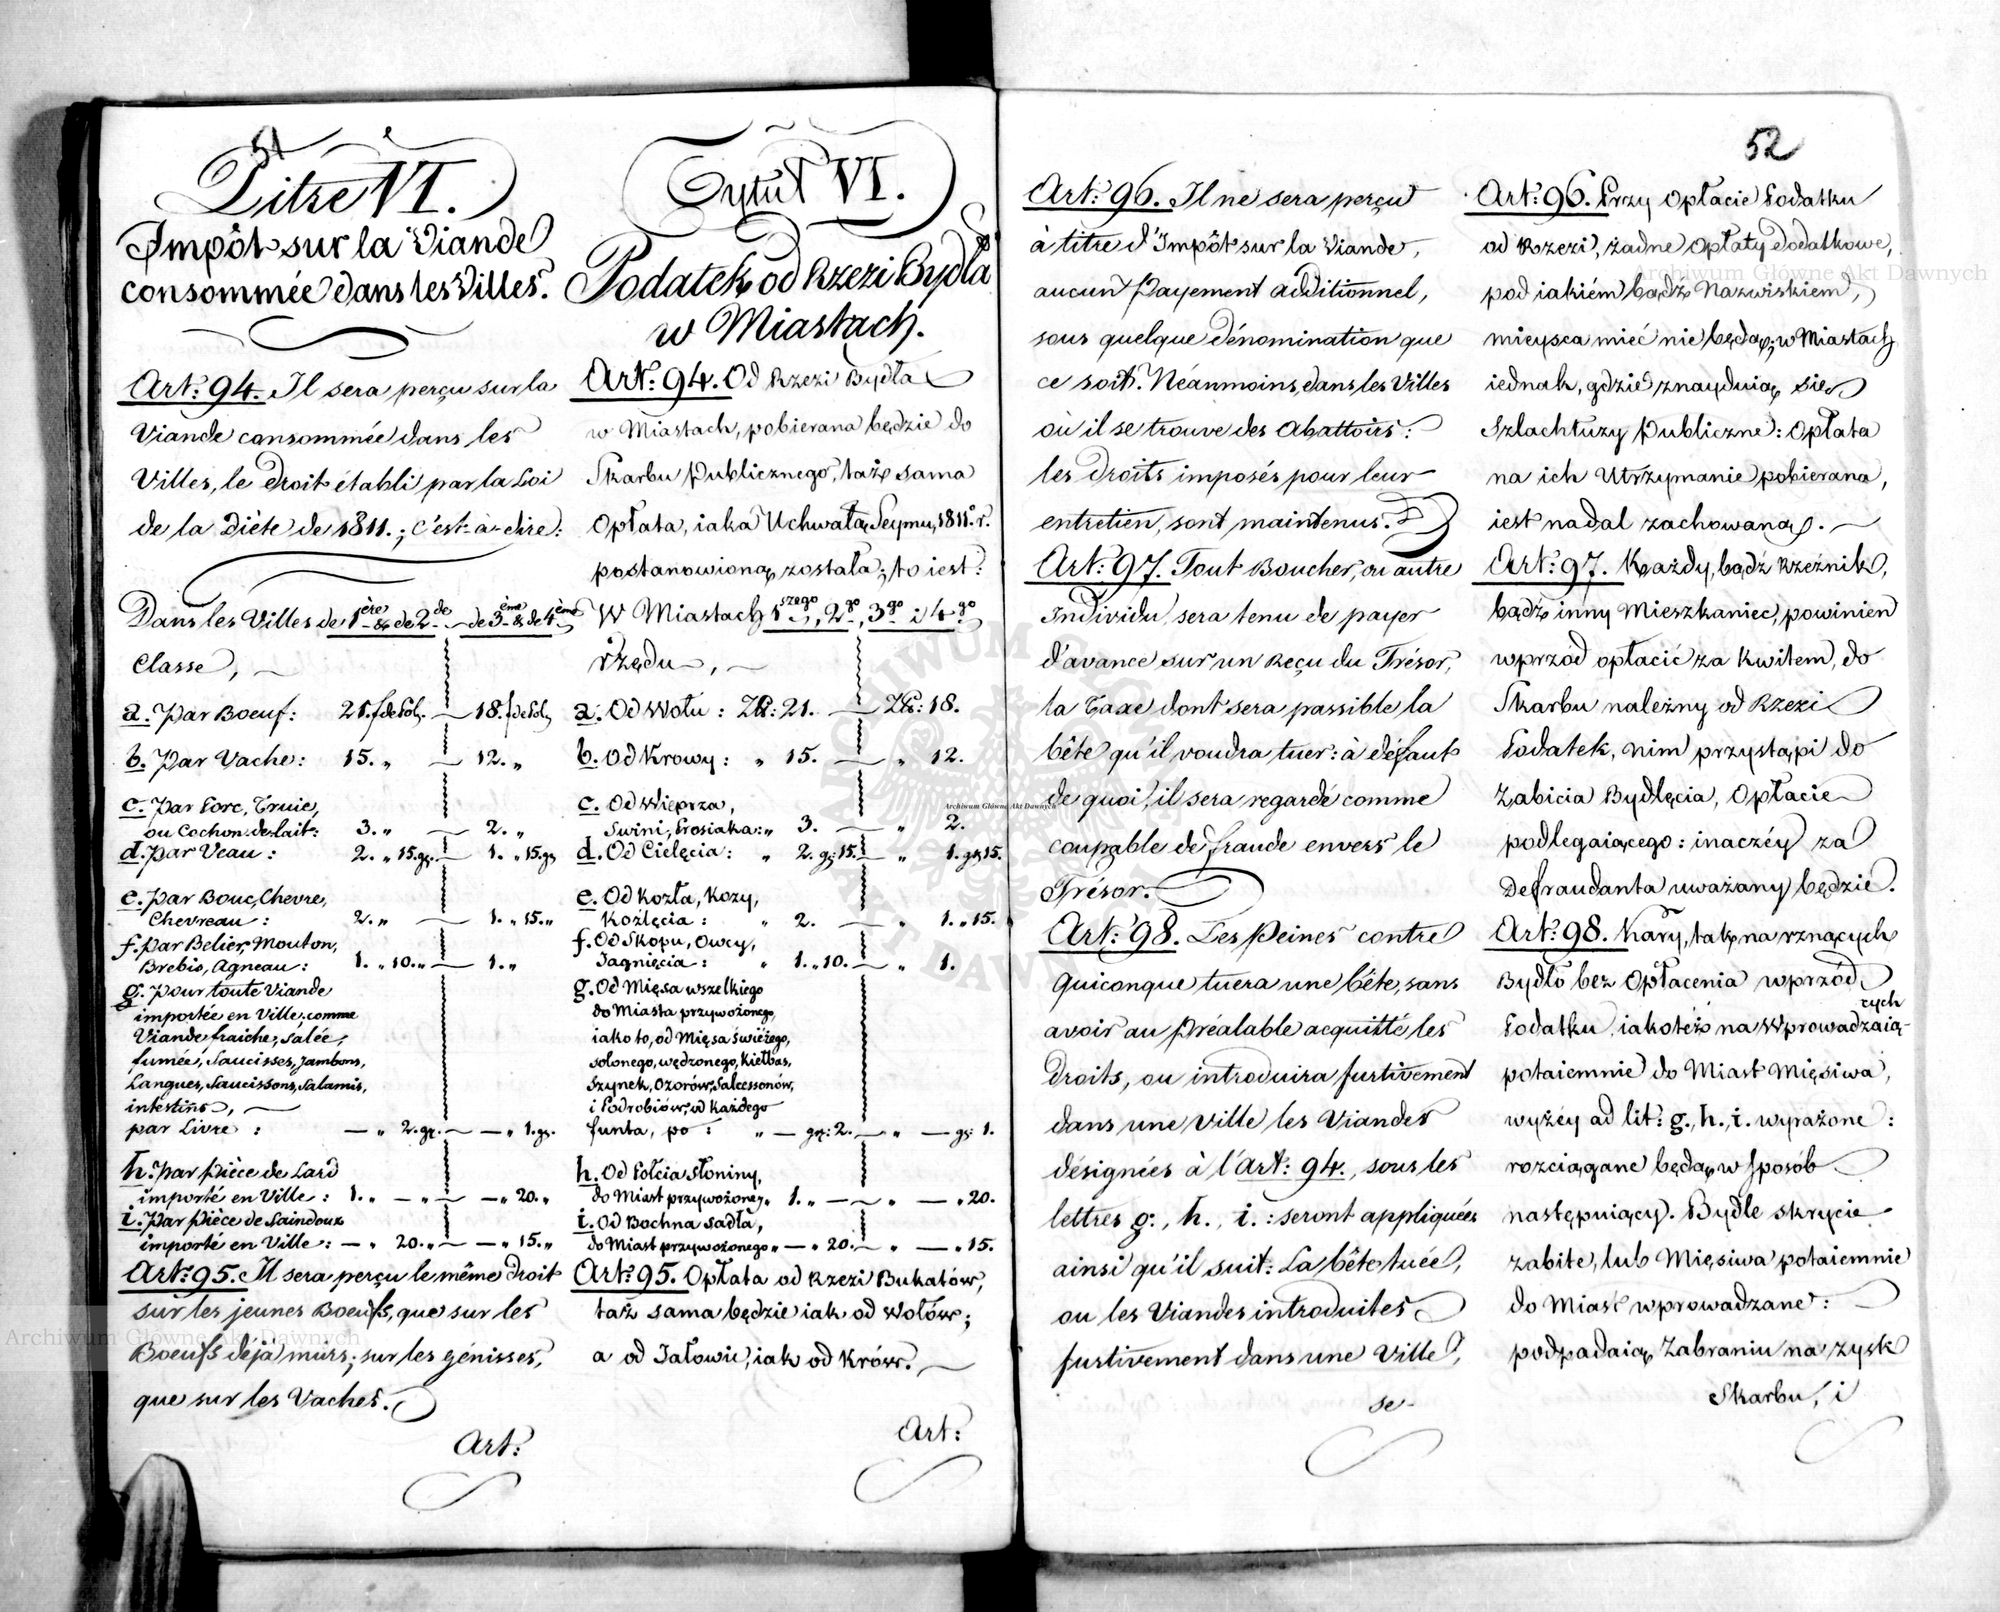 51
Titre VI.
Impôt sur la Viande
consommée dans les Villes.
Art: 94. Il sera perçu sur la
Viande consommée dans les
Villes, le droit établi par la Loi
de la Diète de 1811.; c'est-à-dire:
Dans les Villes de 1ère & de 2de — de 3ème & de 4ème
Classe, —
a. Par Boeuf: 21. f de Pol. — 18. f de Pol.
b. Par Vache: 15. „ — 12. „
c. Par Porc, Truie,
ou Cochon de lait: 3. „ — 2. „
d. Par Veau: 2. „ 15. gr. — 1. „ 15. gr
e. Par Bouc, Chevre,
Chevreau: 2. „ — 1. „ 15. „
f. Par Belier, Mouton,
Brebis, Agneau: 1. „ 10. „ — 1. „
g. Pour toute Viande
importée en Ville, comme
Viande fraiche, Salée,
fumée, Saucisses, Jambons,
Langues, Saucissons, Salamis,
intestins, —
par Livre: — „ 2. gr. — — „ 1. gr.
h. Par pièce de Lard
importé en Ville: 1. „ — „ — — „ 20. „
i. Par pièce de Saindoux
importé en Ville: — „ 20. „ — — „ 15. „
Art: 95. Il sera perçu le même droit
sur les jeunes Boeufs, que sur les
Boeufs déjà mûrs; sur les génisses,
que sur les Vaches.
Art:
Tytuł VI.
Podatek od Rzezi Bydła
w Miastach.
Art: 94. Od Rzezi Bydła
w Miastach, pobierana będzie do
Skarbu Publicznego, taż sama
Opłata, iaka Uchwałą Seymu, 1811. r.
postanowioną została; to iest:
W Miastach 1szego, 2go, 3go i 4go
rzędu, —
a. Od Wołu: Zł: 21. — Zł: 18.
b. Od Krowy: „ 15. — „ 12.
c. Od Wieprza,
Swini, Prosiaka: „ 3. — „ 2.
d. Od Cielęcia: „ 2. gr: 15. — „ 1. gr 15.
e. Od Kozła, Kozy,
Koźlęcia: „ 2. — „ 1. „ 15.
f. Od Skopu, Owcy,
Jagnięcia: „ 1. „ 10. — „ 1.
g. Od Mięsa wszelkiego
do Miasta przywożonego,
iako to, od Mięsa świeżego,
solonego, wędzonego, Kiełbas,
Szynek, Ozorów, Salcessonów,
i Podrobiów, od każdego
funta, po: „ — gr: 2. — „ — gr: 1.
h. Od Połcia Słoniny,
do Miast przywożoney „ 1. „ — — „ — „ 20.
i. Od Bochna Sadła,
do Miast przywożonego „ — „ 20. — „ — „ 15.
Art: 95. Opłata od Rzezi Bukatów,
taż sama będzie iak od Wołów;
a od Jałowic, iak od Krów. —
Art:
52
Art: 96. Il ne sera perçu
à titre d'Impôt sur la Viande,
aucun Payement additionnel,
sous quelque dénomination que
ce soit. Néanmoins, dans les Villes
où il se trouve des Abattoirs:
les droits imposés pour leur
entretien, sont maintenus.
Art: 97. Tout Boucher, ou autre
Individu, sera tenu de payer
d'avance sur un Reçu du Trésor,
la Taxe dont sera passible la
bête qu'il voudra tuer: à défaut
de quoi, il sera regardé comme
coupable de fraude envers le
Trésor.
Art: 98. Les Peines contre
quiconque tuera une bête, sans
avoir au Préalable acquitté les
Droits, ou introduira furtivement
dans une Ville les Viandes
désignées à l'Art: 94., sous les
lettres g., h., i.: seront appliquées
ainsi qu'il suit: La bête tuée,
ou les Viandes introduites
furtivement dans une Ville,
se-
Art: 96. Przy Opłacie Podatku
od Rzezi, żadne Opłaty dodatkowe,
pod iakiém bądź Nazwiskiem,
mieysca mieć nie będą; w Miastach
iednak, gdzie znayduią się
Szlachtuzy Publiczne: Opłata
na ich Utrzymanie pobierana,
iest nadal zachowaną. —
Art: 97. Każdy, bądź Rzeźnik,
bądź inny Mieszkaniec, powinien
wprzód opłacić za Kwitem, do
Skarbu należny od Rzezi
Podatek, nim przystąpi do
Zabicia Bydlęcia, Opłacie
podlegaiącego: inaczéy za
Defraudanta uważany będzie.
Art: 98. Kary, tak na rznących
Bydło bez Opłacenia wprzód
Podatku, iakoteż na Wprowadzaią-
cych
potaiemnie do Miast Mięsiwa,
wyżey ad lit: g., h., i. wyrażone:
rozciągane będą, w Sposób
następuiący. Bydle skrycie
zabite, lub Mięsiwa potaiemnie
do Miast wprowadzane:
podpadaią Zabraniu na zysk
Skarbu, i
Archiwum Główne Akt Dawnych
Archiwum Główne Akt Dawnych
Archiwum Główne Akt Dawnych
ARCHIWUM GŁÓWNE AKT DAWNYCH